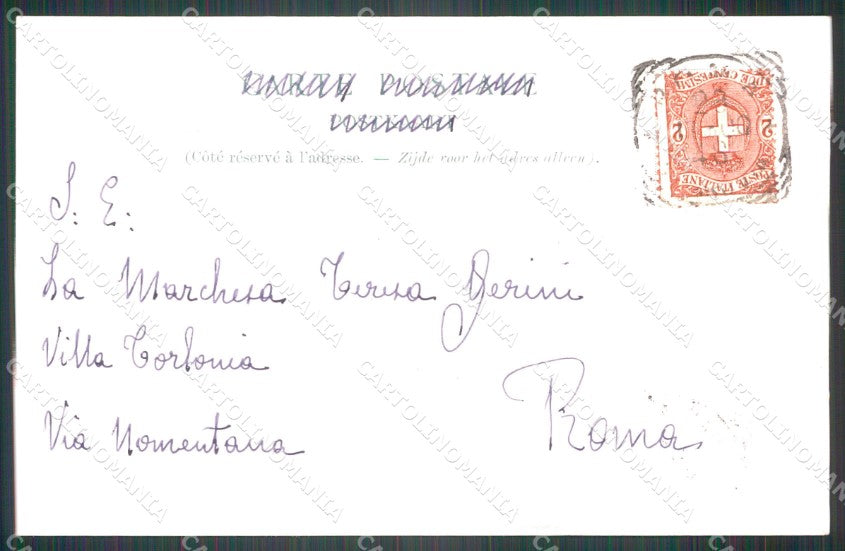 CARTE POSTALE
(Côté réservé à l'adresse. — Zijde voor het adres alleen).
DUE CENTESIMI
2 2
POSTE ITALIANE
S. E:
La Marchesa Teresa Gerini
Villa Torlonia
Via Nomentana
Roma
CARTOLINOMANIA